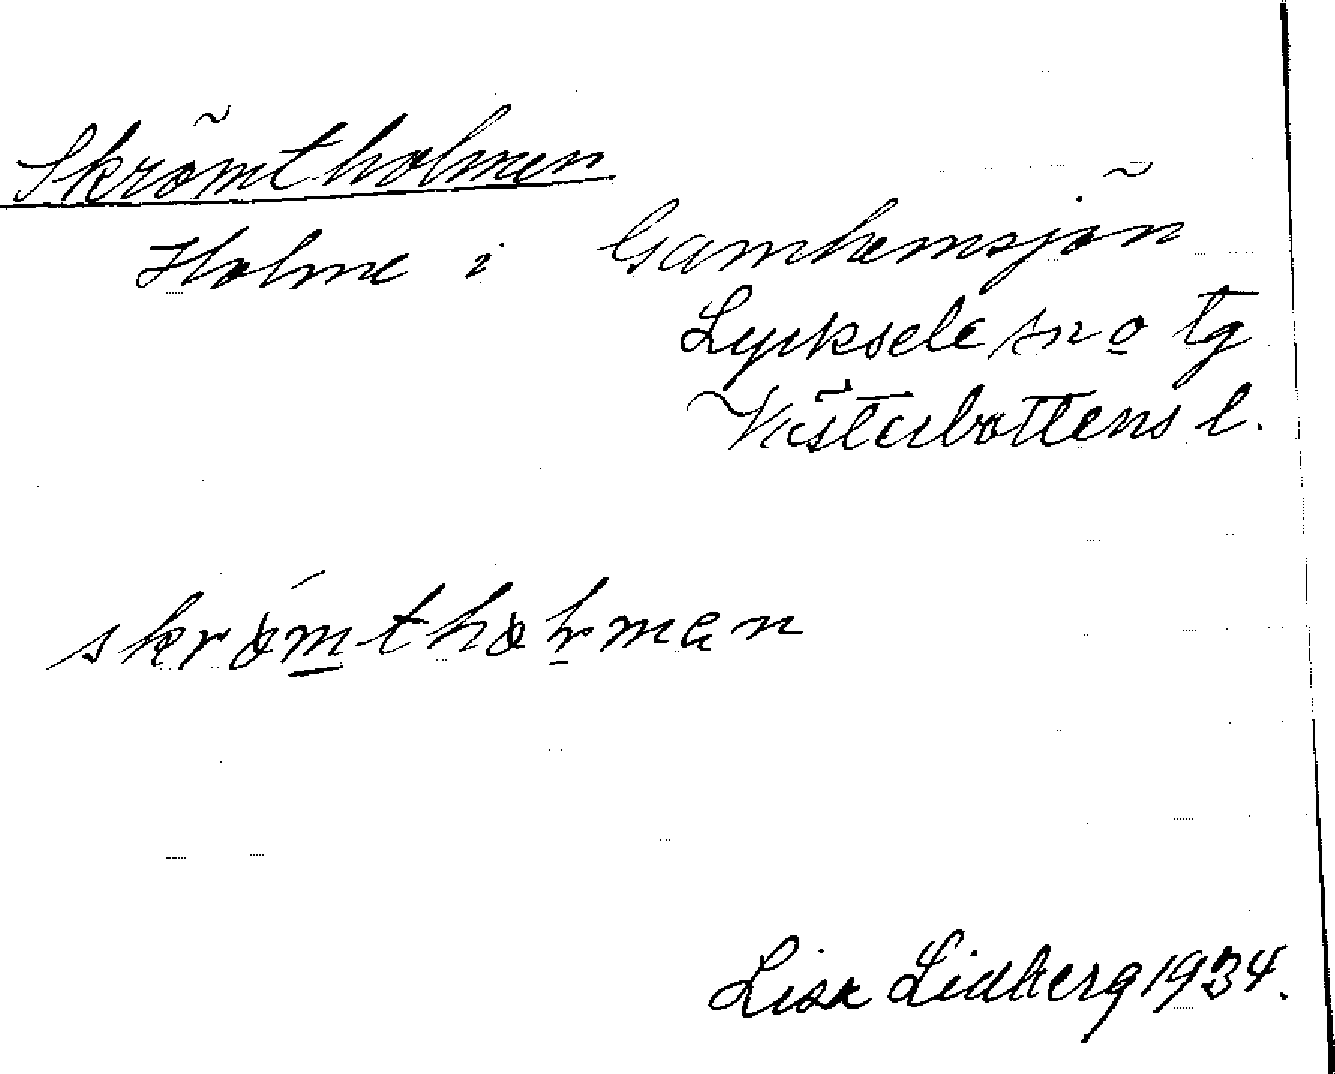 Skrömtholmen
Holme i Gamhemsjön
Lycksele sn o tg
Västerbottens l.
skrömthọḷmạn
Lisa Lidberg 1934.